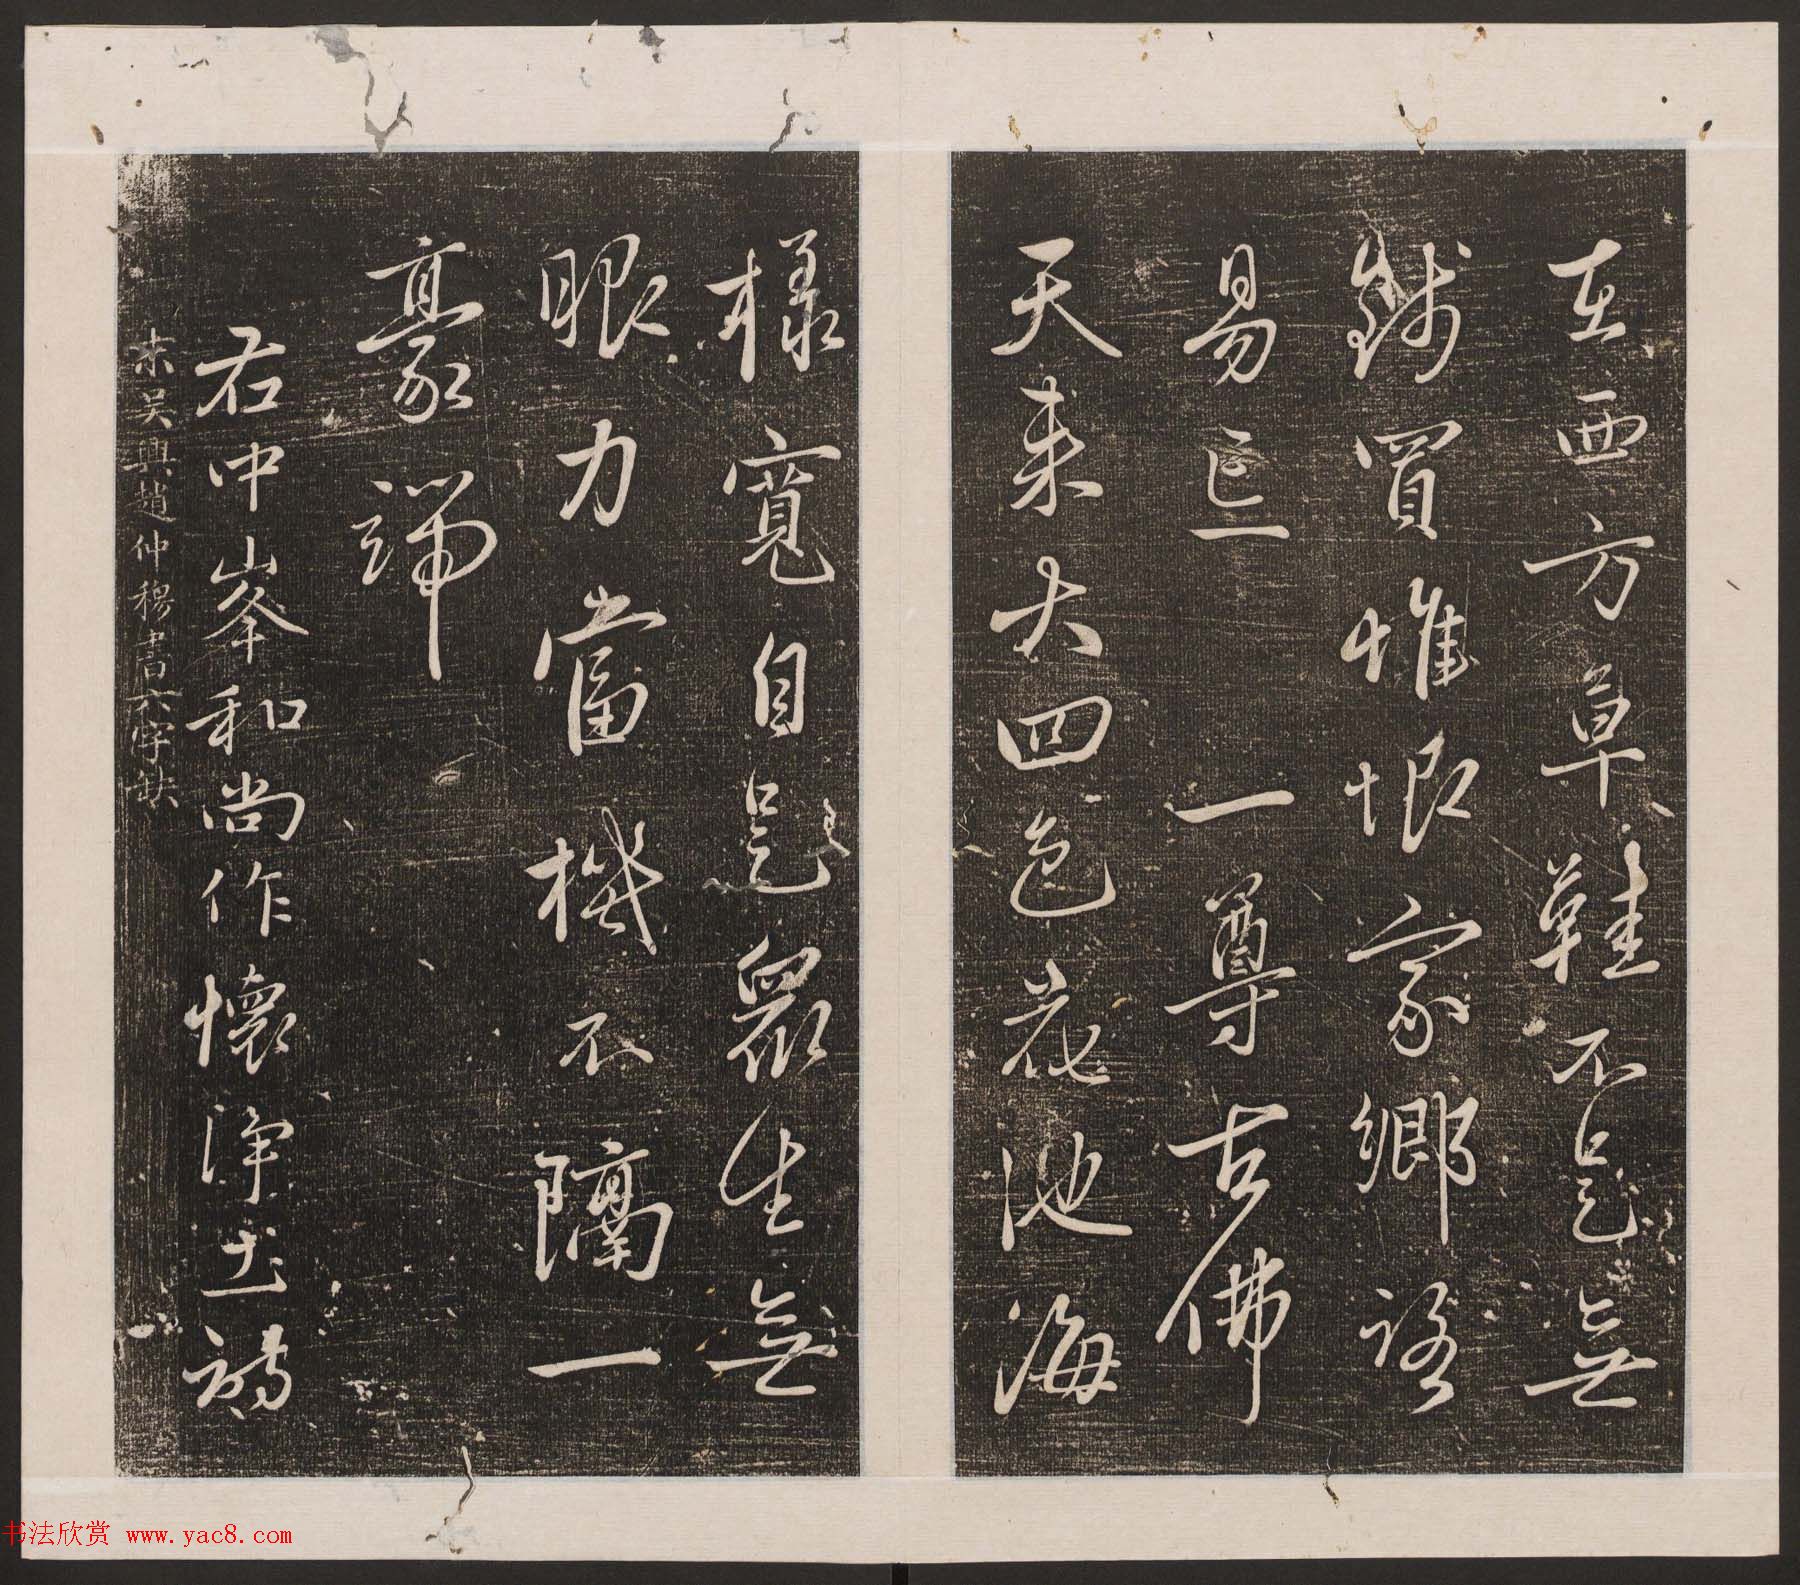 在西方草鞋不是無
錢買惟恨家鄉路
易忘 一尊古佛
天來大四色花池海
樣寬自是眾生無
眼力當機不隔一
豪端
右中峯和尚作懷淨土詩
末吴興趙仲穆書六字缺
书法欣赏 www.yac8.com